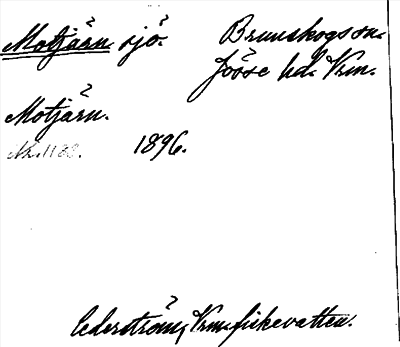 Motjään sjö. Brunskogs sn.
Jösse hd. Vrm.
Motjärn.
1896.
Cederström, Vrm. fiskevatten.